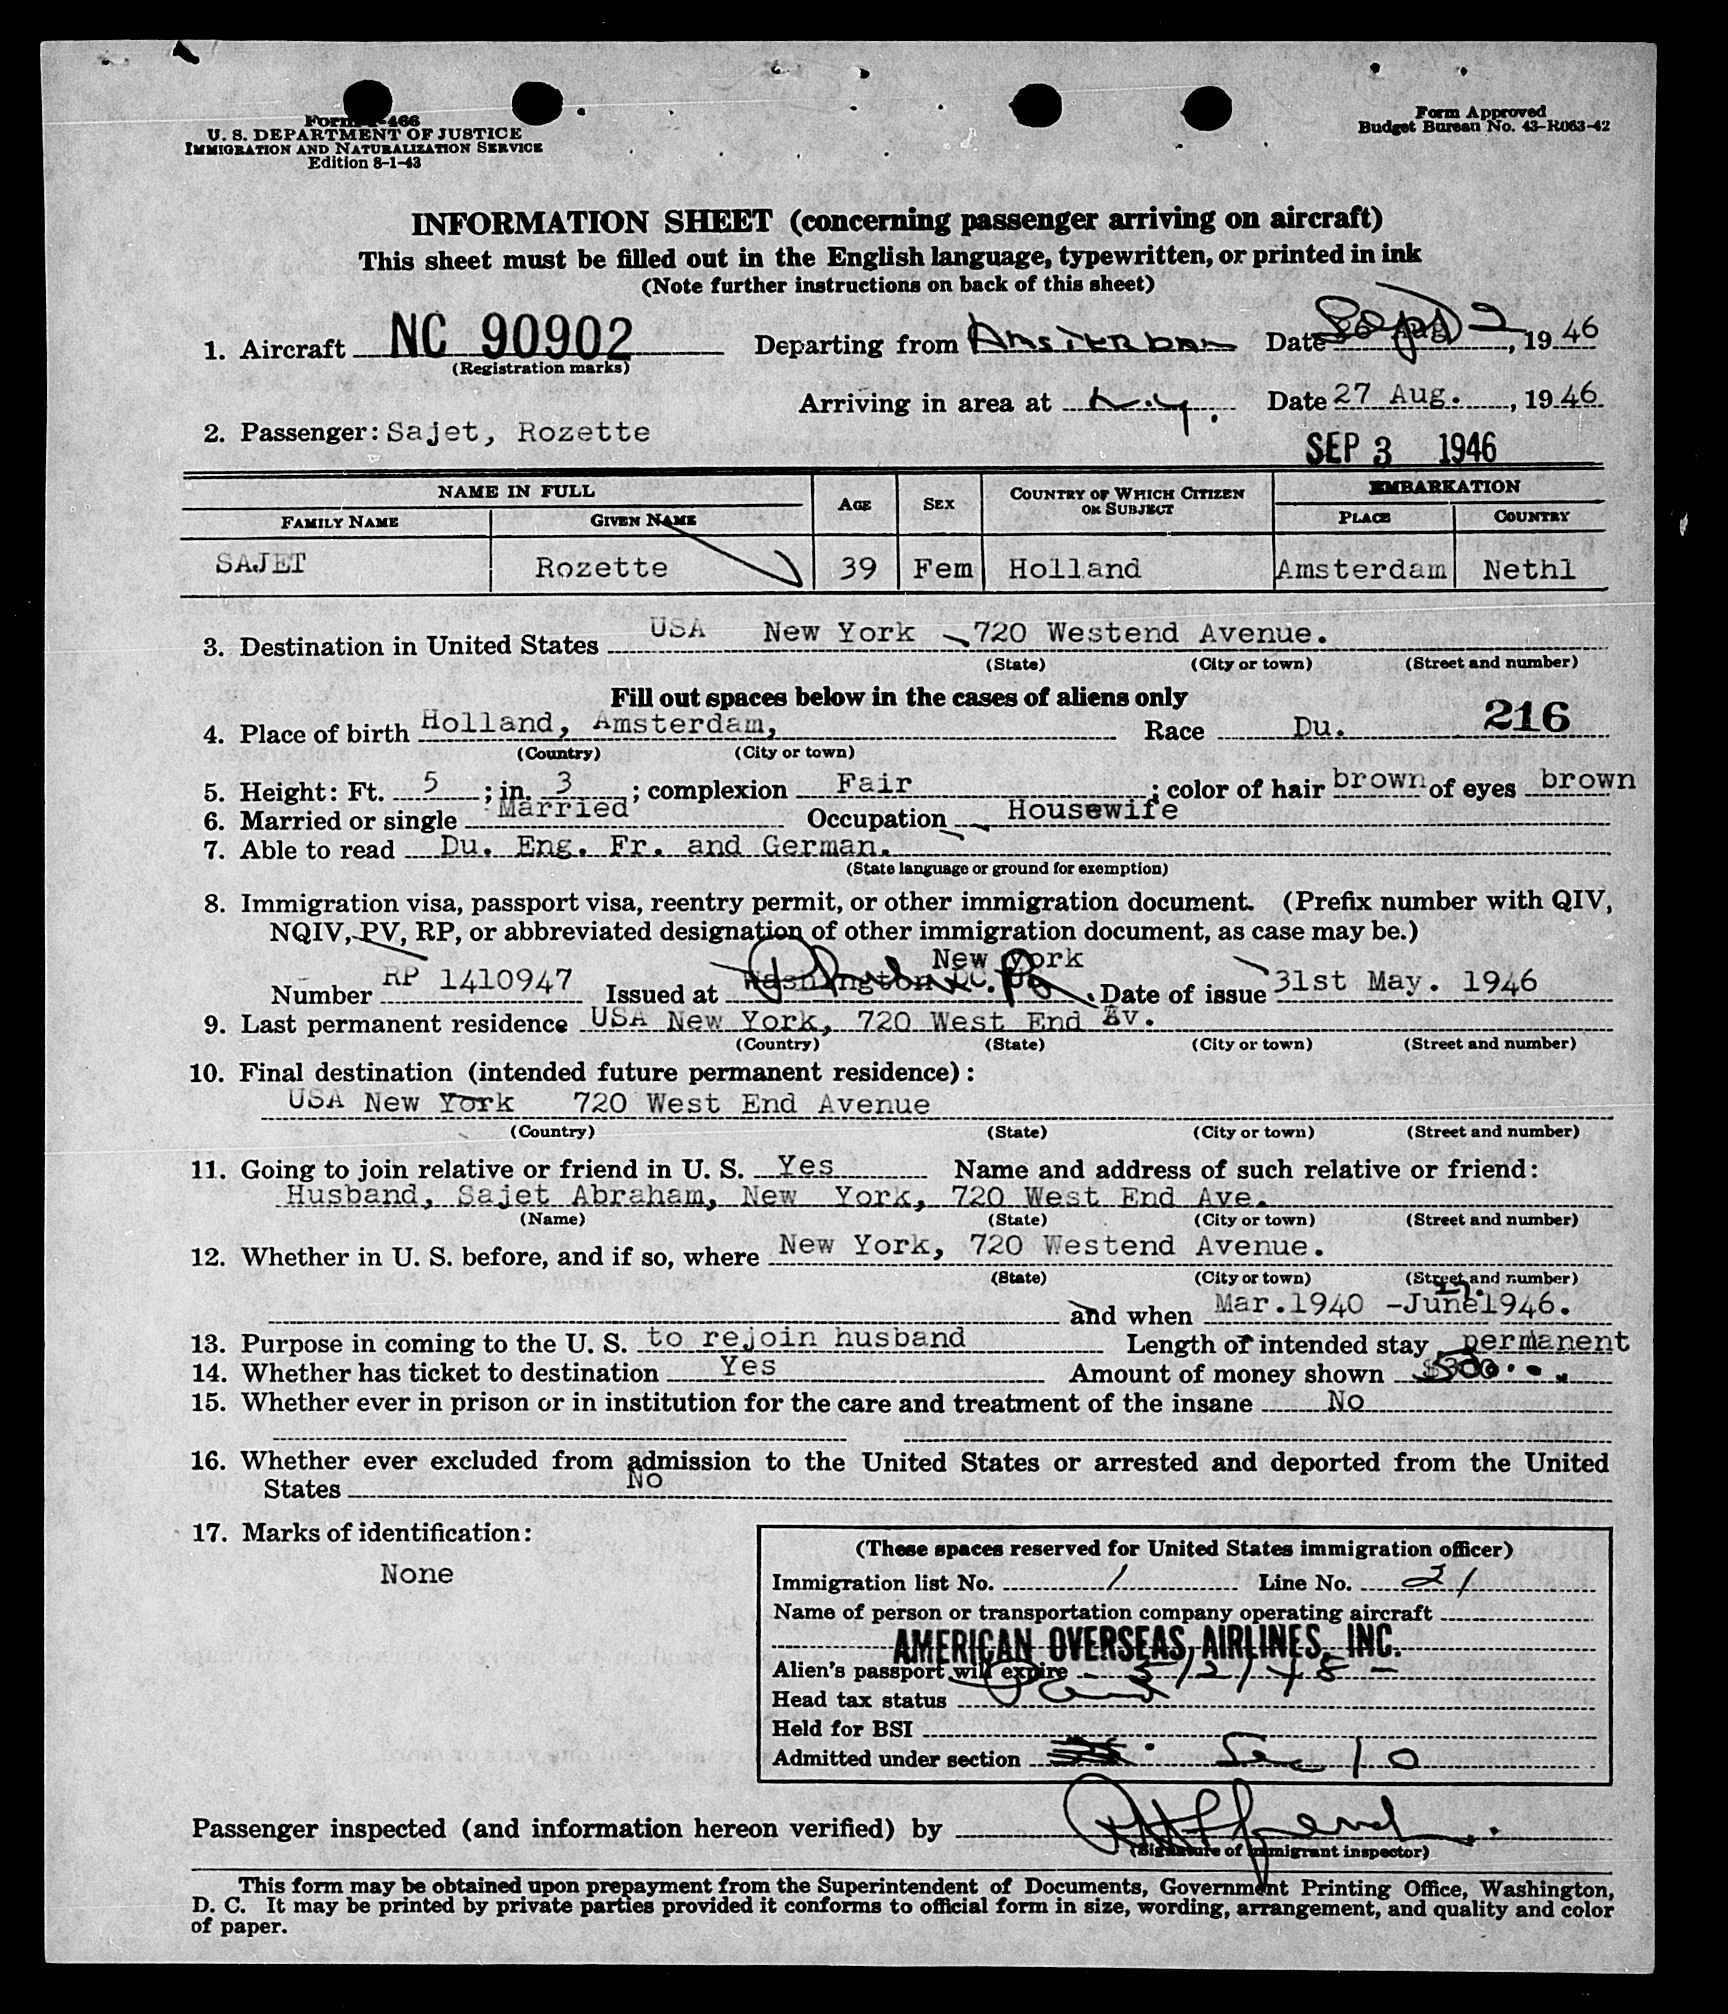 Form I-466
U. S. DEPARTMENT OF JUSTICE
IMMIGRATION AND NATURALIZATION SERVICE
Edition 8-1-43
Form Approved
Budget Bureau No. 43-R063-42
INFORMATION SHEET (concerning passenger arriving on aircraft)
This sheet must be filled out in the English language, typewritten, or printed in ink
(Note further instructions on back of this sheet)
1. Aircraft NC 90902 Departing from AMSTERDAM Date Sept 2, 1946
(Registration marks)
Arriving in area at N.Y. Date 27 Aug., 1946
2. Passenger: Sajet, Rozette
SEP 3 1946
NAME IN FULL AGE SEX COUNTRY OF WHICH CITIZEN OR SUBJECT EMBARKATION
FAMILY NAME GIVEN NAME PLACE COUNTRY
SAJET Rozette 39 Fem Holland Amsterdam Nethl
3. Destination in United States USA New York 720 Westend Avenue.
(State) (City or town) (Street and number)
Fill out spaces below in the cases of aliens only
216
4. Place of birth Holland, Amsterdam, Race Du.
(Country) (City or town)
5. Height: Ft. 5 ; in. 3 ; complexion Fair ; color of hair brown of eyes brown
6. Married or single Married Occupation Housewife
7. Able to read Du. Eng. Fr. and German.
(State language or ground for exemption)
8. Immigration visa, passport visa, reentry permit, or other immigration document. (Prefix number with QIV,
NQIV, PV, RP, or abbreviated designation of other immigration document, as case may be.)
New York
Number RP 1410947 Issued at Washington DC. Date of issue 31st May. 1946
9. Last permanent residence USA New York, 720 West End Av.
(Country) (State) (City or town) (Street and number)
10. Final destination (intended future permanent residence):
USA New York 720 West End Avenue
(Country) (State) (City or town) (Street and number)
11. Going to join relative or friend in U. S. Yes Name and address of such relative or friend:
Husband, Sajet Abraham, New York, 720 West End Ave.
(Name) (State) (City or town) (Street and number)
12. Whether in U. S. before, and if so, where New York, 720 Westend Avenue.
(State) (City or town) (Street and number)
and when Mar.1940 -June 1946.
13. Purpose in coming to the U. S. to rejoin husband Length of intended stay permanent
14. Whether has ticket to destination Yes Amount of money shown $300
15. Whether ever in prison or in institution for the care and treatment of the insane No
16. Whether ever excluded from admission to the United States or arrested and deported from the United
States No
17. Marks of identification:
None
(These spaces reserved for United States immigration officer)
Immigration list No. 1 Line No. 21
Name of person or transportation company operating aircraft
AMERICAN OVERSEAS AIRLINES, INC.
Alien's passport will expire 5/2/48
Head tax status
Held for BSI
Admitted under section Sec 10
Passenger inspected (and information hereon verified) by
(Signature of immigrant inspector)
This form may be obtained upon prepayment from the Superintendent of Documents, Government Printing Office, Washington,
D. C. It may be printed by private parties provided it conforms to official form in size, wording, arrangement, and quality and color
of paper.